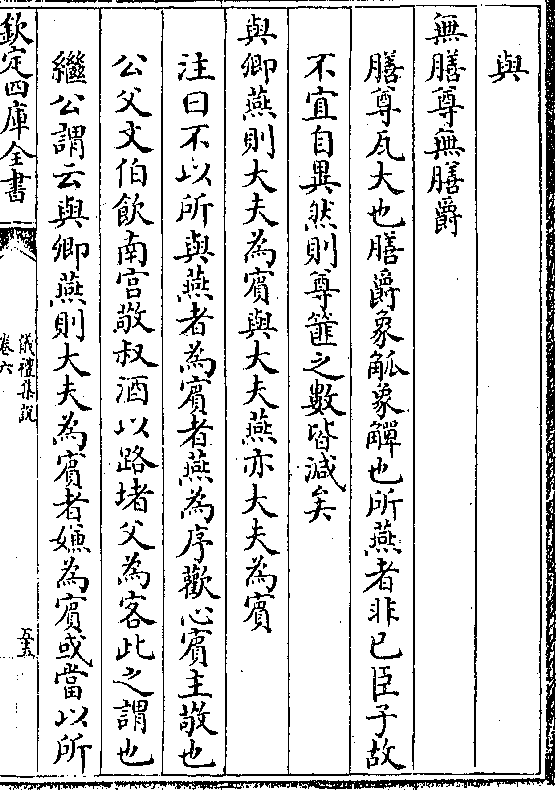 與
無膳尊無膳爵
膳尊瓦大也膳爵象觚象觶也所燕者非已臣子故
不宜自異然則尊篚之數皆減矣
與卿燕則大夫為賓與大夫燕亦大夫為賓
注曰不以所與燕者為賓者燕為序歡心賓主敬也
公父文伯飲南宫敬叔酒以路堵父為客此之謂也
繼公謂云與卿燕則大夫為賓者嫌為賓或當以所
欽定四庫全書
儀禮集說
卷六